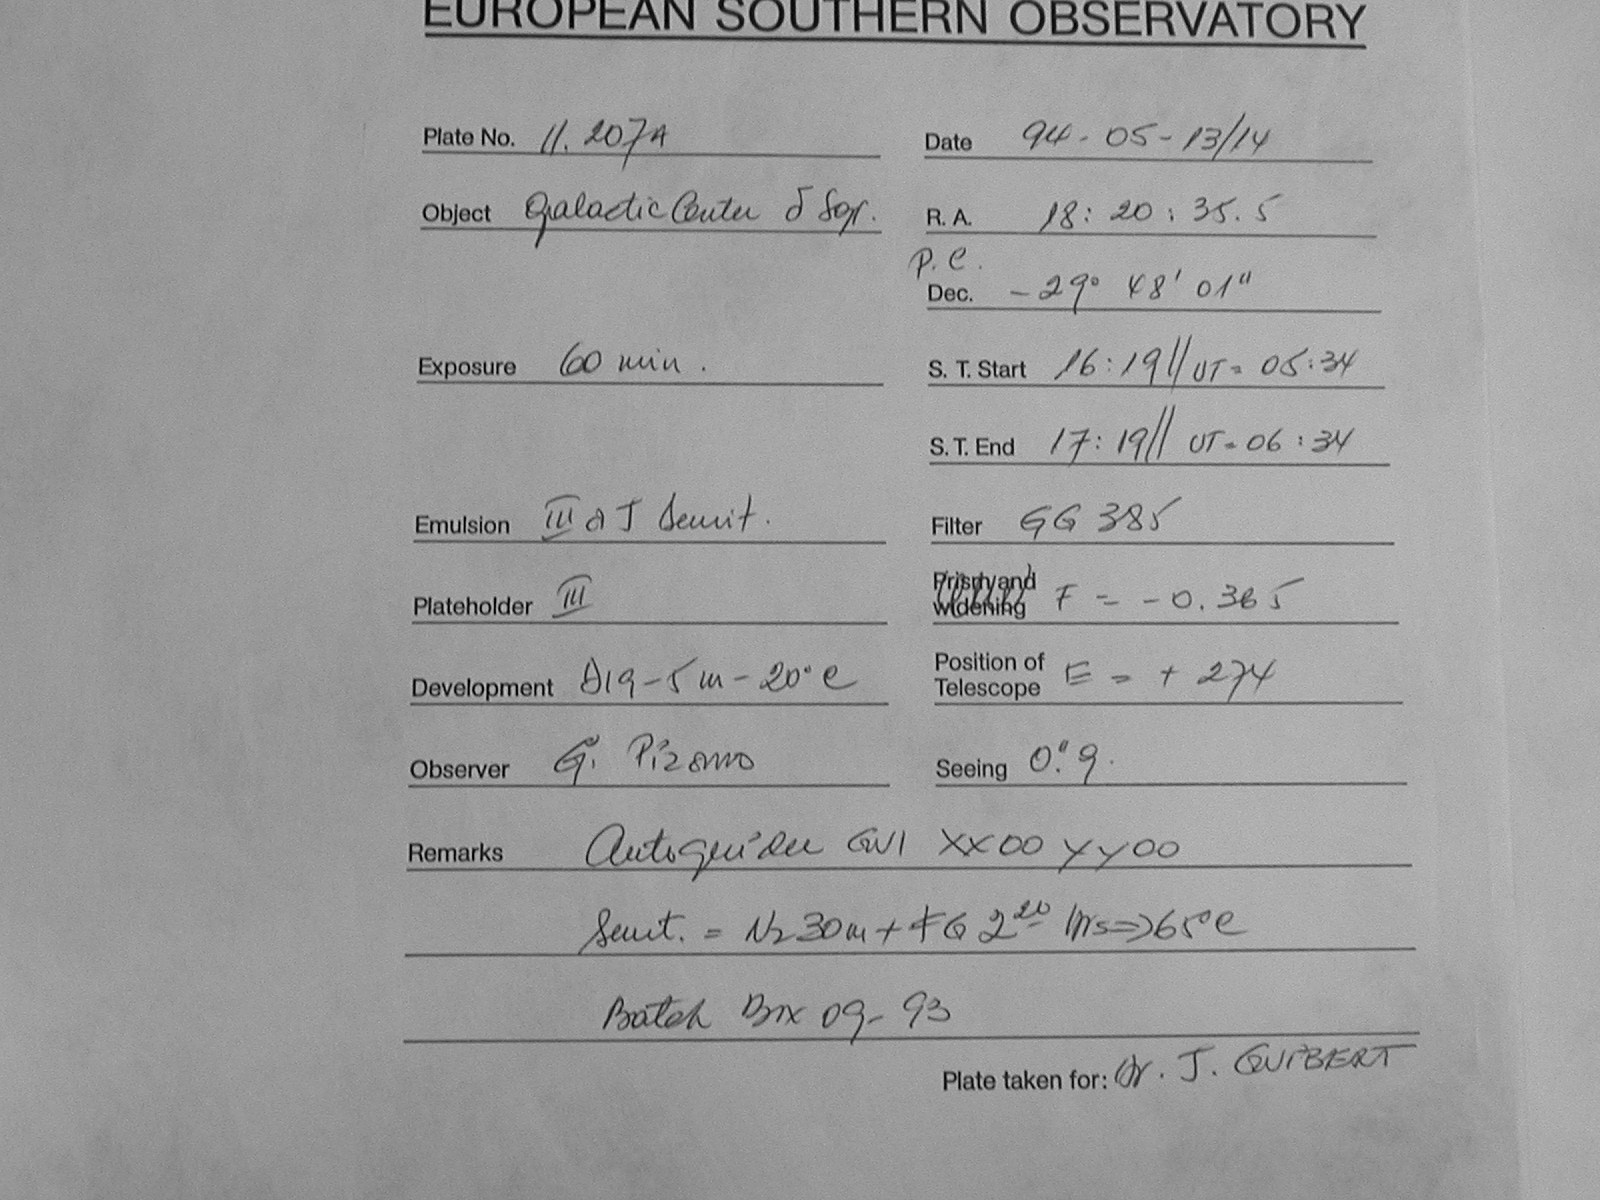 EUROPEAN SOUTHERN OBSERVATORY
Plate No. 11.207A
Date 94-05-13/14
Object Galactic Center δ Sgr.
R. A. 18:20:35.5
P.C.
Dec. -29° 48' 01"
Exposure 60 min.
S. T. Start 16:19// UT= 05:34
S. T. End 17:19// UT=06:34
Emulsion III a J
Filter GG 385
Plateholder III
Prism and widening F = -0.365
Development D19-5m-20°C
Position of Telescope E = + 274
Observer G. Pizarro
Seeing 0."9.
Remarks Autoguider GV1 XX00 YY00
= N2 30m + FG 2 20 hrs=>65°C
Batch Box 09-93
Plate taken for: Dr. J. GUIBERT